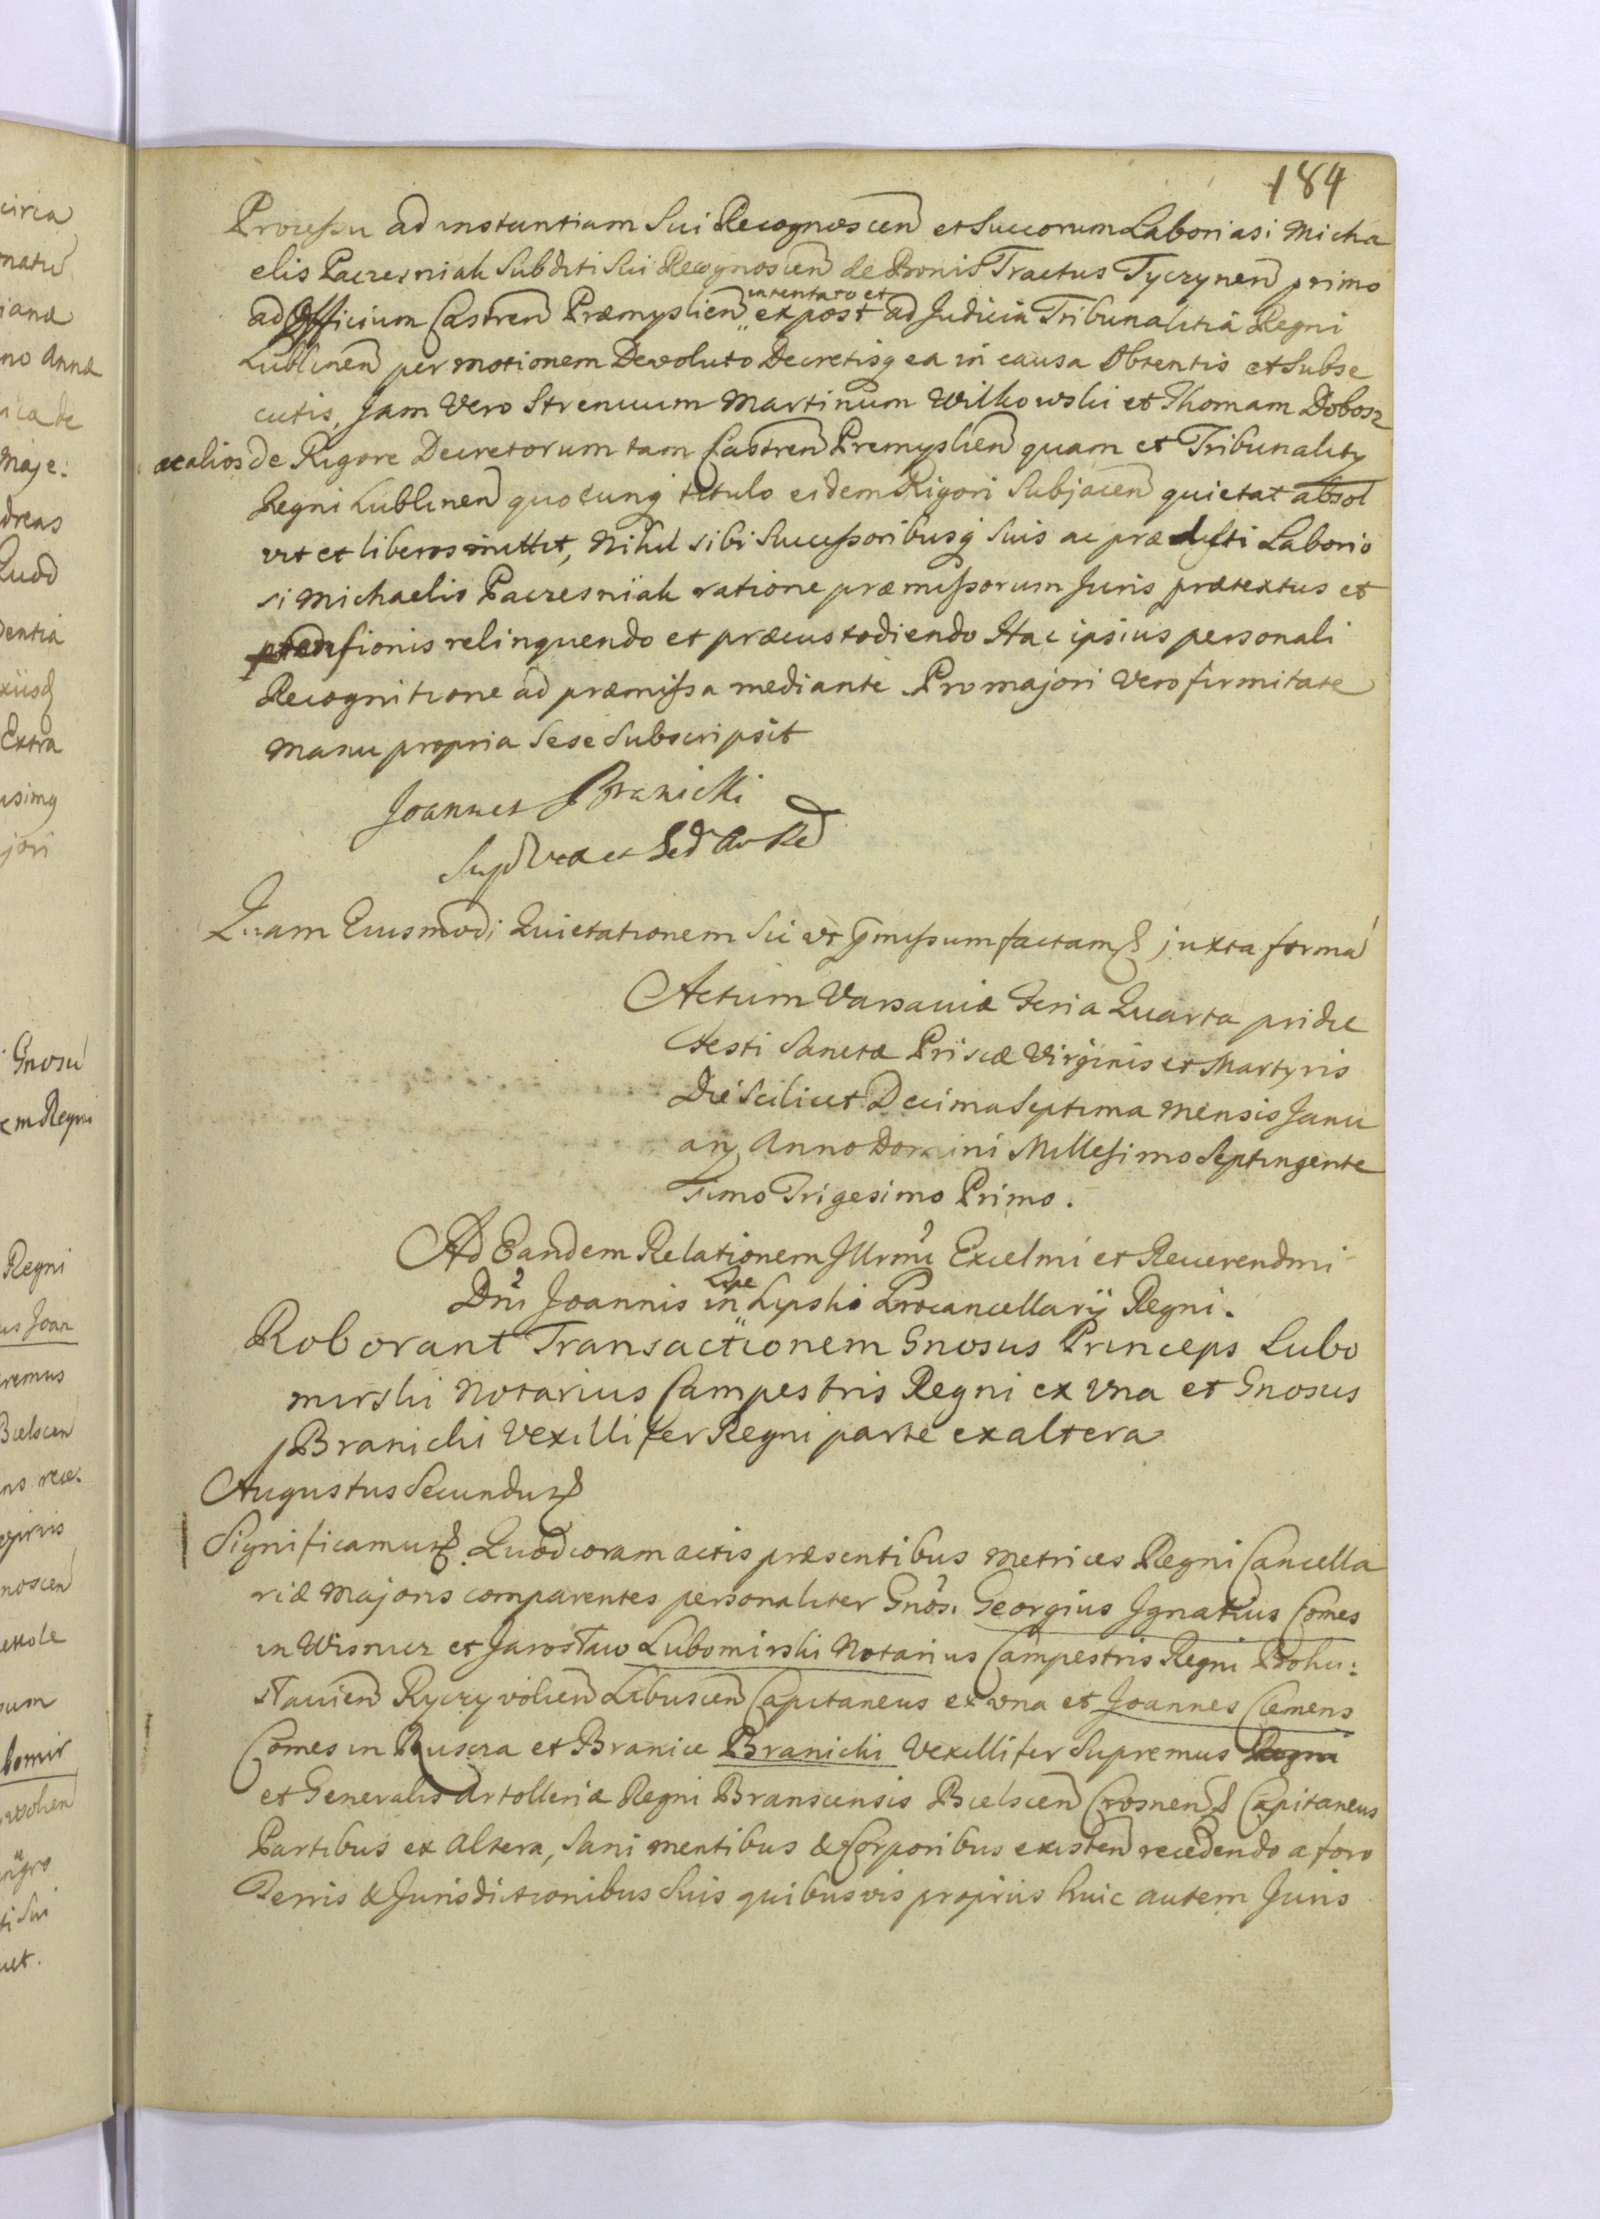 184
Processu ad instantiam Sui Recognoscen et Succorum Laboriosi Micha
elis Paczesniak Subditi Sui Recognoscen de Bonis Tractus Tyczynen primo
ad Officium Castren Præmyslien intentato et ex post ad Judicia Tribunalitia Regni
Lublinen per motionem Devoluto Decretisq ea in causa Obtentis et Subse
cutis, Jam Vero Strenuum Martinum Wilkowski et Thomam Dobosz
ac alios de Rigore Decretorum tam Castren Premyslien quam et Tribunality
Regni Lublinen quocunq titulo eidem Rigori Subjacen quietat absol
vit et liberos mittit, Nihil sibi Successoribusq Suis ac præ Laborio
si Michaelis Paczesniak ratione præmissorum Juris prætextus et
relinquendo et præcustodiendo Hac ipsius personali
Recognitione ad præmissa mediante Pro majori Vero firmitate
manu propria Sese Subscripsit
Joannes Branicki
Quam Eiusmodi Quietationem Sic ut factam juxta formá
Actum Varsaviæ Feria Quarta pridie
Festi Sanctæ Priscæ Virginis et Martyris
Die Scilicet Decima Septima Mensis Janu
arij Anno Domini Millesimo Septingente
simo Trigesimo Primo.
Ad Eandem Relationem Illrmi Excelmi et Reverendmi
Dni Joannis in Lipe Lipski Procancellarij Regni.
Roborant Transactionem Gnosus Princeps Lubo
mirski Notarius Campestris Regni ex Vna et Gnosus
Branicki Vexillifer Regni parte ex altera
Augustus Secundus
Significamus. Quod coram actis præsentibus Metrices Regni Cancella
riæ Majoris comparentes personaliter Gnosi Georgius Ignatius Comes
in Wisnicz et Jarosław Lubomirski Notarius Campestris Regni Bohu:
slavien Ryczyvolien Libuscen Capitaneus ex vna et Joannes Clemens
Comes in Ruscza et Branice Branicki Vexillifer Supremus Regni
et Generalis Artolleriæ Regni Branscensis Bielscen Crosnen Capitaneus
Partibus ex altera, Sani mentibus & Corporibus existen recedendo a foro
Terris & Jurisdictionibus Suis quibusvis propriis huic autem Juris